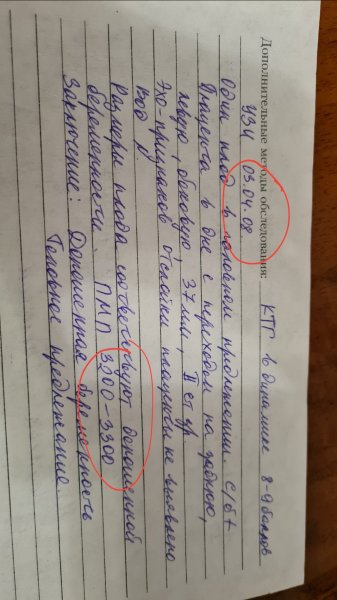 Дополнительные методы обследования: КТГ в динамике 8-9 баллов
УЗИ 03.04.08
Один плод в головном предлежании. с/б +
Плацента в дне с переходом на заднюю,
левую, боковую, 37мм, II ст зр.
Эхо-признаков отслойки плаценты не выявлено
Вод N.
Размеры плода соответствуют доношенной
беременности ПМП 3200-3300
Заключение: Доношенная беременность
Головное предлежание.